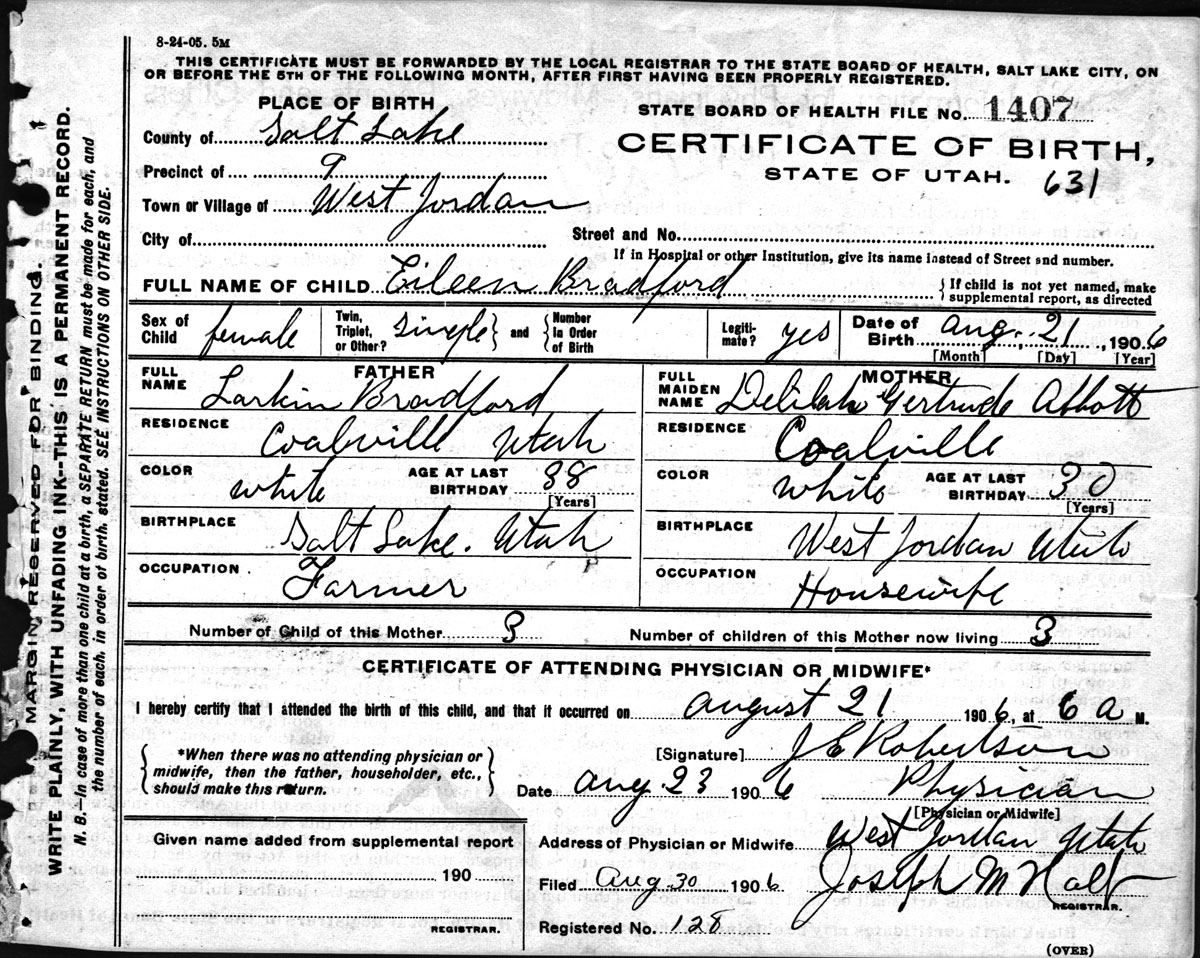 8-24-05. 5M
THIS CERTIFICATE MUST BE FORWARDED BY THE LOCAL REGISTRAR TO THE STATE BOARD OF HEALTH, SALT LAKE CITY, ON
OR BEFORE THE 5TH OF THE FOLLOWING MONTH, AFTER FIRST HAVING BEEN PROPERLY REGISTERED.
PLACE OF BIRTH
STATE BOARD OF HEALTH FILE No. 1407
County of Salt Lake
CERTIFICATE OF BIRTH,
Precinct of 9
STATE OF UTAH. 631
Town or Village of West Jordan
City of
Street and No.
If in Hospital or other Institution, give its name instead of Street and number.
FULL NAME OF CHILD Eileen Bradford {If child is not yet named, make supplemental report, as directed
Sex of Child female Twin, Triplet, or Other? single } and { Number in Order of Birth Legitimate? yes Date of Birth Aug. 21, 1906
[Month] [Day] [Year]
FATHER
MOTHER
FULL NAME Larkin Bradford
FULL MAIDEN NAME Delilah Gertrude Abbott
RESIDENCE Coalville Utah
RESIDENCE Coalville
COLOR white AGE AT LAST BIRTHDAY 38 [Years]
COLOR white AGE AT LAST BIRTHDAY 30 [Years]
BIRTHPLACE Salt Lake. Utah
BIRTHPLACE West Jordan Utah
OCCUPATION. Farmer
OCCUPATION Housewife
Number of Child of this Mother 3 Number of children of this Mother now living 3
CERTIFICATE OF ATTENDING PHYSICIAN OR MIDWIFE*
I hereby certify that I attended the birth of this child, and that it occurred on August 21 1906, at 6 a M.
{*When there was no attending physician or
midwife, then the father, householder, etc.,
should make this return.}
[Signature] J E Robertson
Date Aug 23 1906 Physician
[Physician or Midwife]
Given name added from supplemental report
190
REGISTRAR.
Address of Physician or Midwife West Jordan Utah
Filed Aug 30 1906 Joseph M Holt
REGISTRAR.
Registered No. 128
(OVER)
MARGIN RESERVED FOR BINDING.
WRITE PLAINLY, WITH UNFADING INK--THIS IS A PERMANENT RECORD.
N. B.—In case of more than one child at a birth, a SEPARATE RETURN must be made for each, and
the number of each, in order of birth, stated. SEE INSTRUCTIONS ON OTHER SIDE.